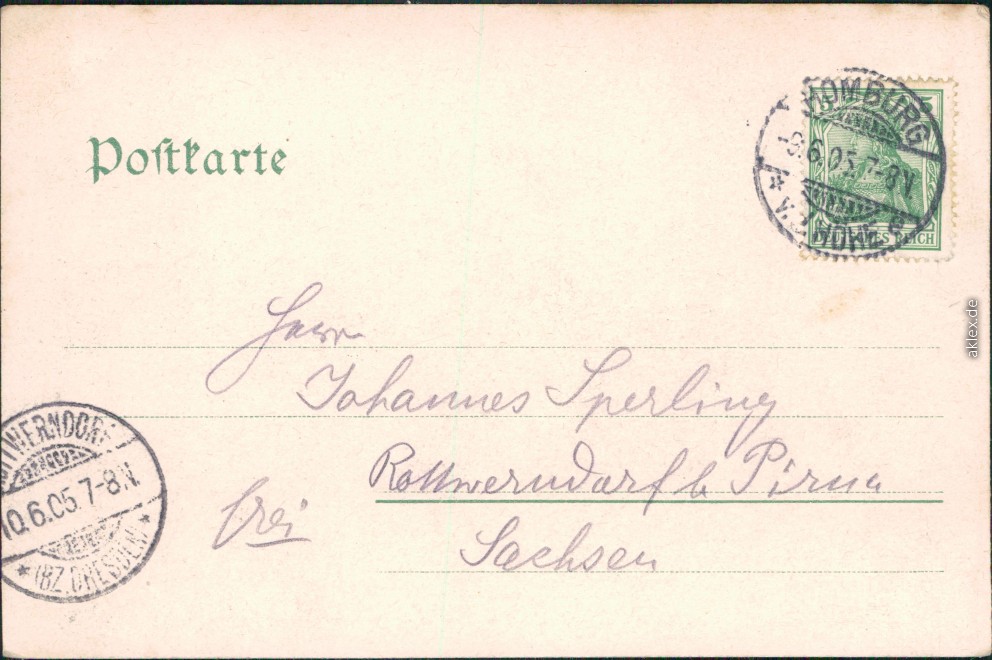 Postkarte
HOMBURG
-9.6.05.7-8N.
* v. d. HÖHE
5
DEUTSCHES REICH
Herr
Johannes Sperling
Rottwerndorf b Pirna
Sachsen
frei
ROTTWERNDORF
10.6.05.7-8.N.
* (BZ. DRESDEN) *
aklex.de